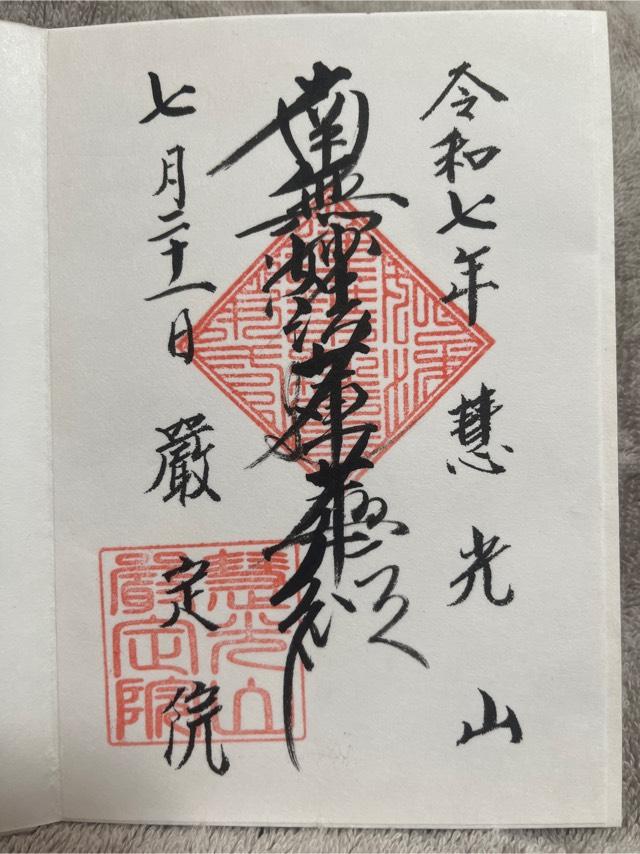 令和七年 慧光山
南無妙法蓮華經
七月二十一日 嚴定院
慧光山
嚴定院